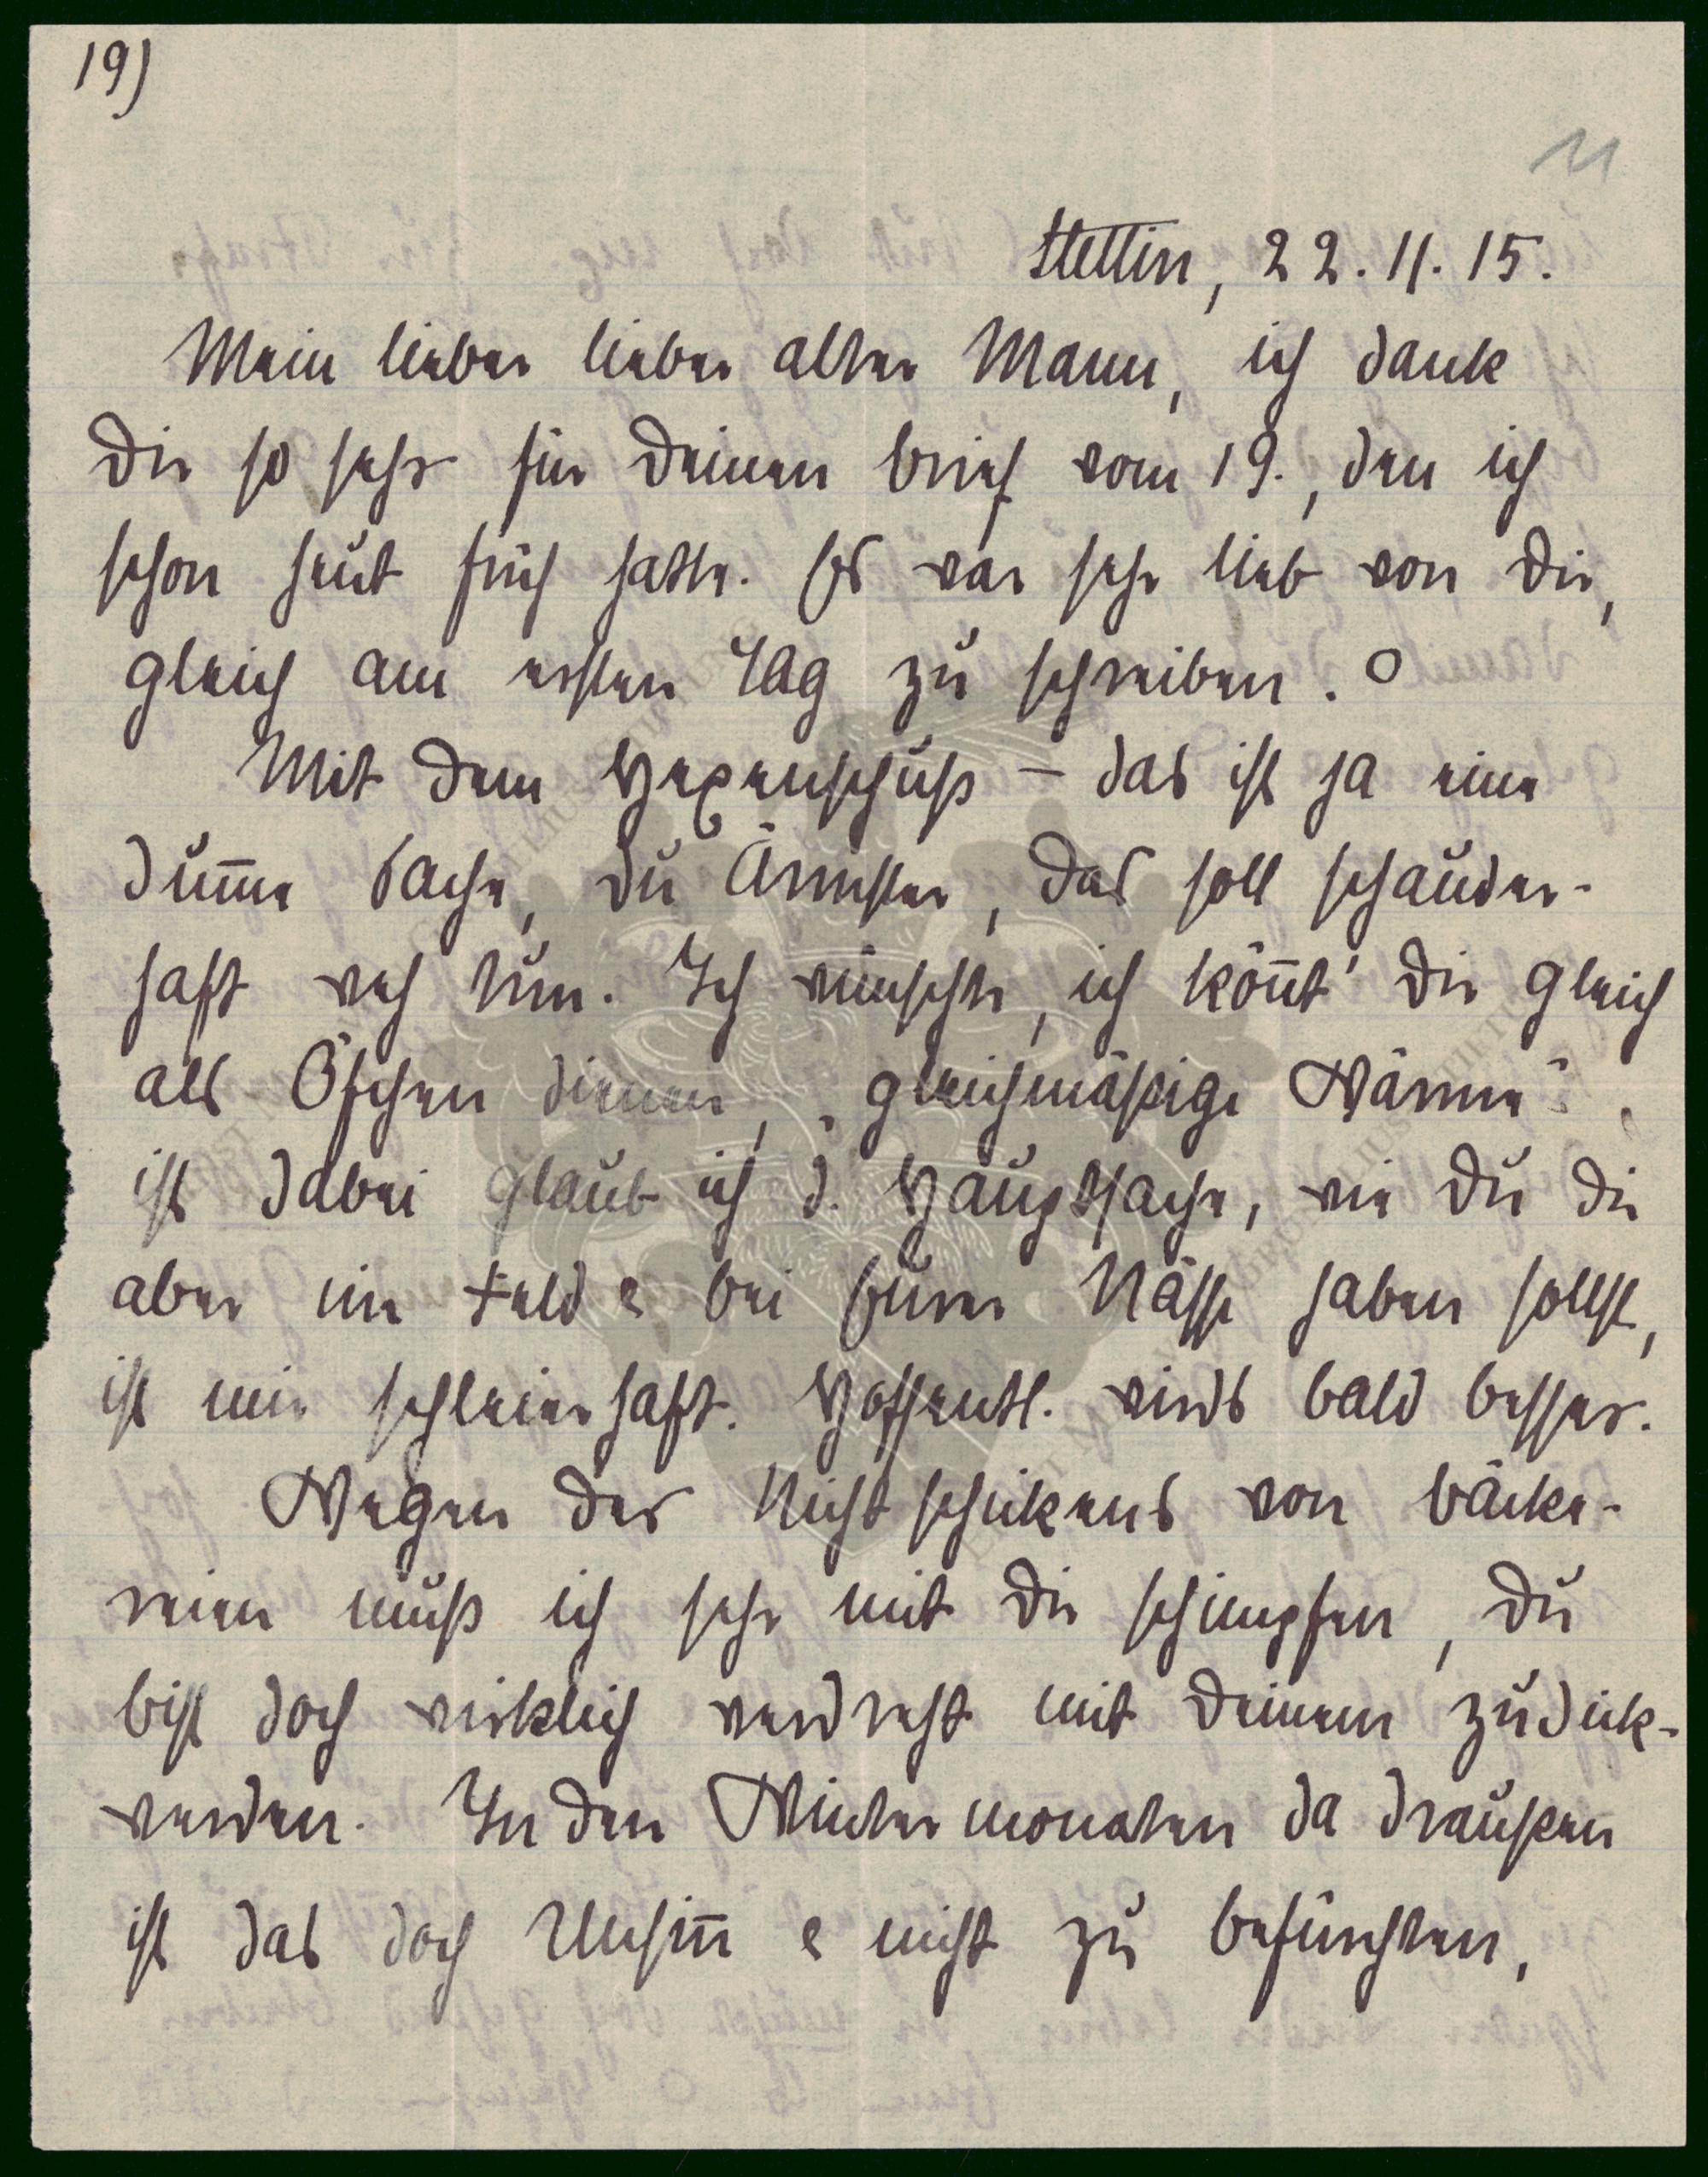 19)
11
Stettin, 22.11.15.
Mein lieber lieber alter Mann, ich dank
Dir so sehr für Deinen Brief vom 19., den ich
schon heut früh hatte. Es war sehr lieb von Dir,
gleich am ersten Tag zu schreiben. O
Mit dem Hexenschuß – das ist ja eine
dum̄e Sache, Du Ärmster, das soll schauder-
haft weh tun. Ich wünschte, ich kön̄t' Dir gleich
als Öfchen dienen, „gleichmäßige Wärme"
ist dabei glaub ich d. Hauptsache, wie Du die
aber im Feld & bei Eurer Nässe haben sollst,
ist mir schleierhaft. Hoffentl. wirds bald besser.
Wegen des Nichtschickens von Bäcke-
reien muß ich sehr mit Dir schimpfen, Du
bist doch wirklich verdreht mit Deinem zudick-
werden. In den Wintermonaten da draußen
ist das doch Unsin̄ & nicht zu befürchten,